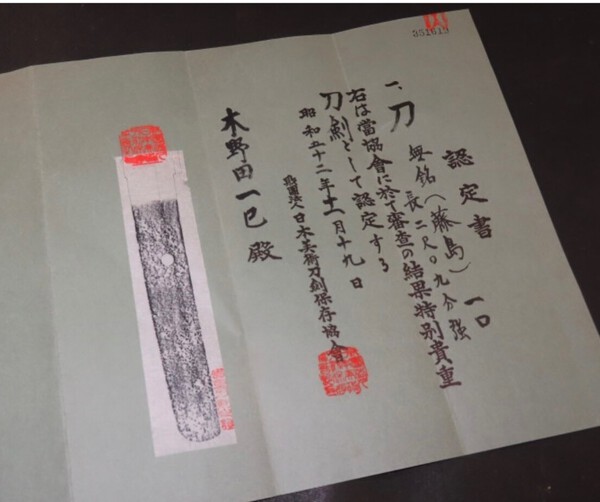 351619
認定書
一、刀 無銘(藤島) 一口
長二尺〇九分强
右は當協會に於て審査の結果特別貴重
刀剣として認定する
昭和五十二年十一月十九日
財團法人日本美術刀剣保存協會
木野田一已殿